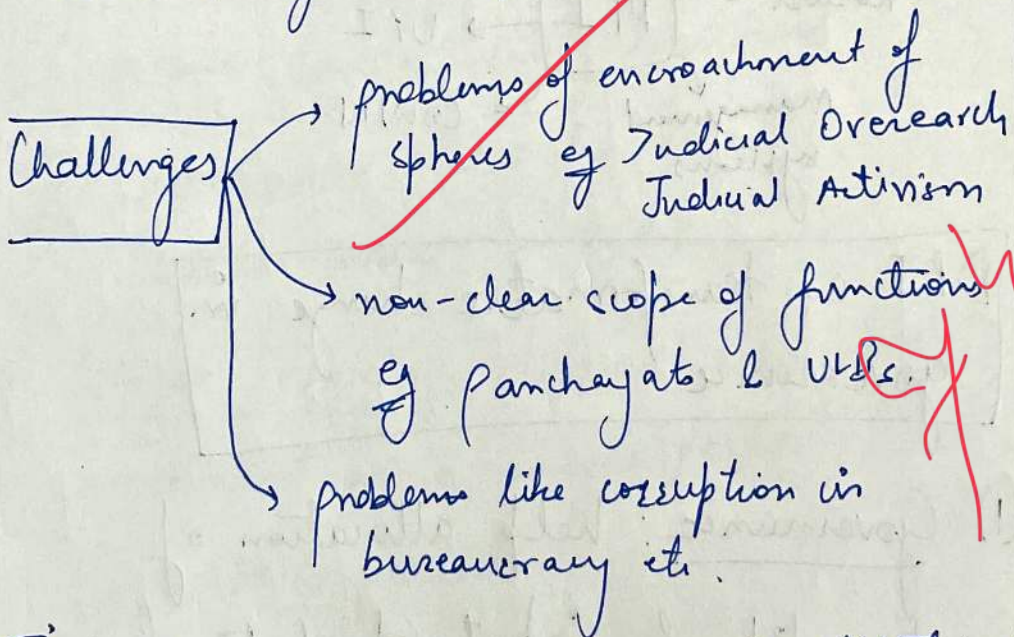 problems of encroachment of
spheres eg Judicial Overearch
Judicial Activism
Challenges
non-clear scope of functions
eg Panchayats & ULBs.
problems like corruption in
bureaucracy etc.